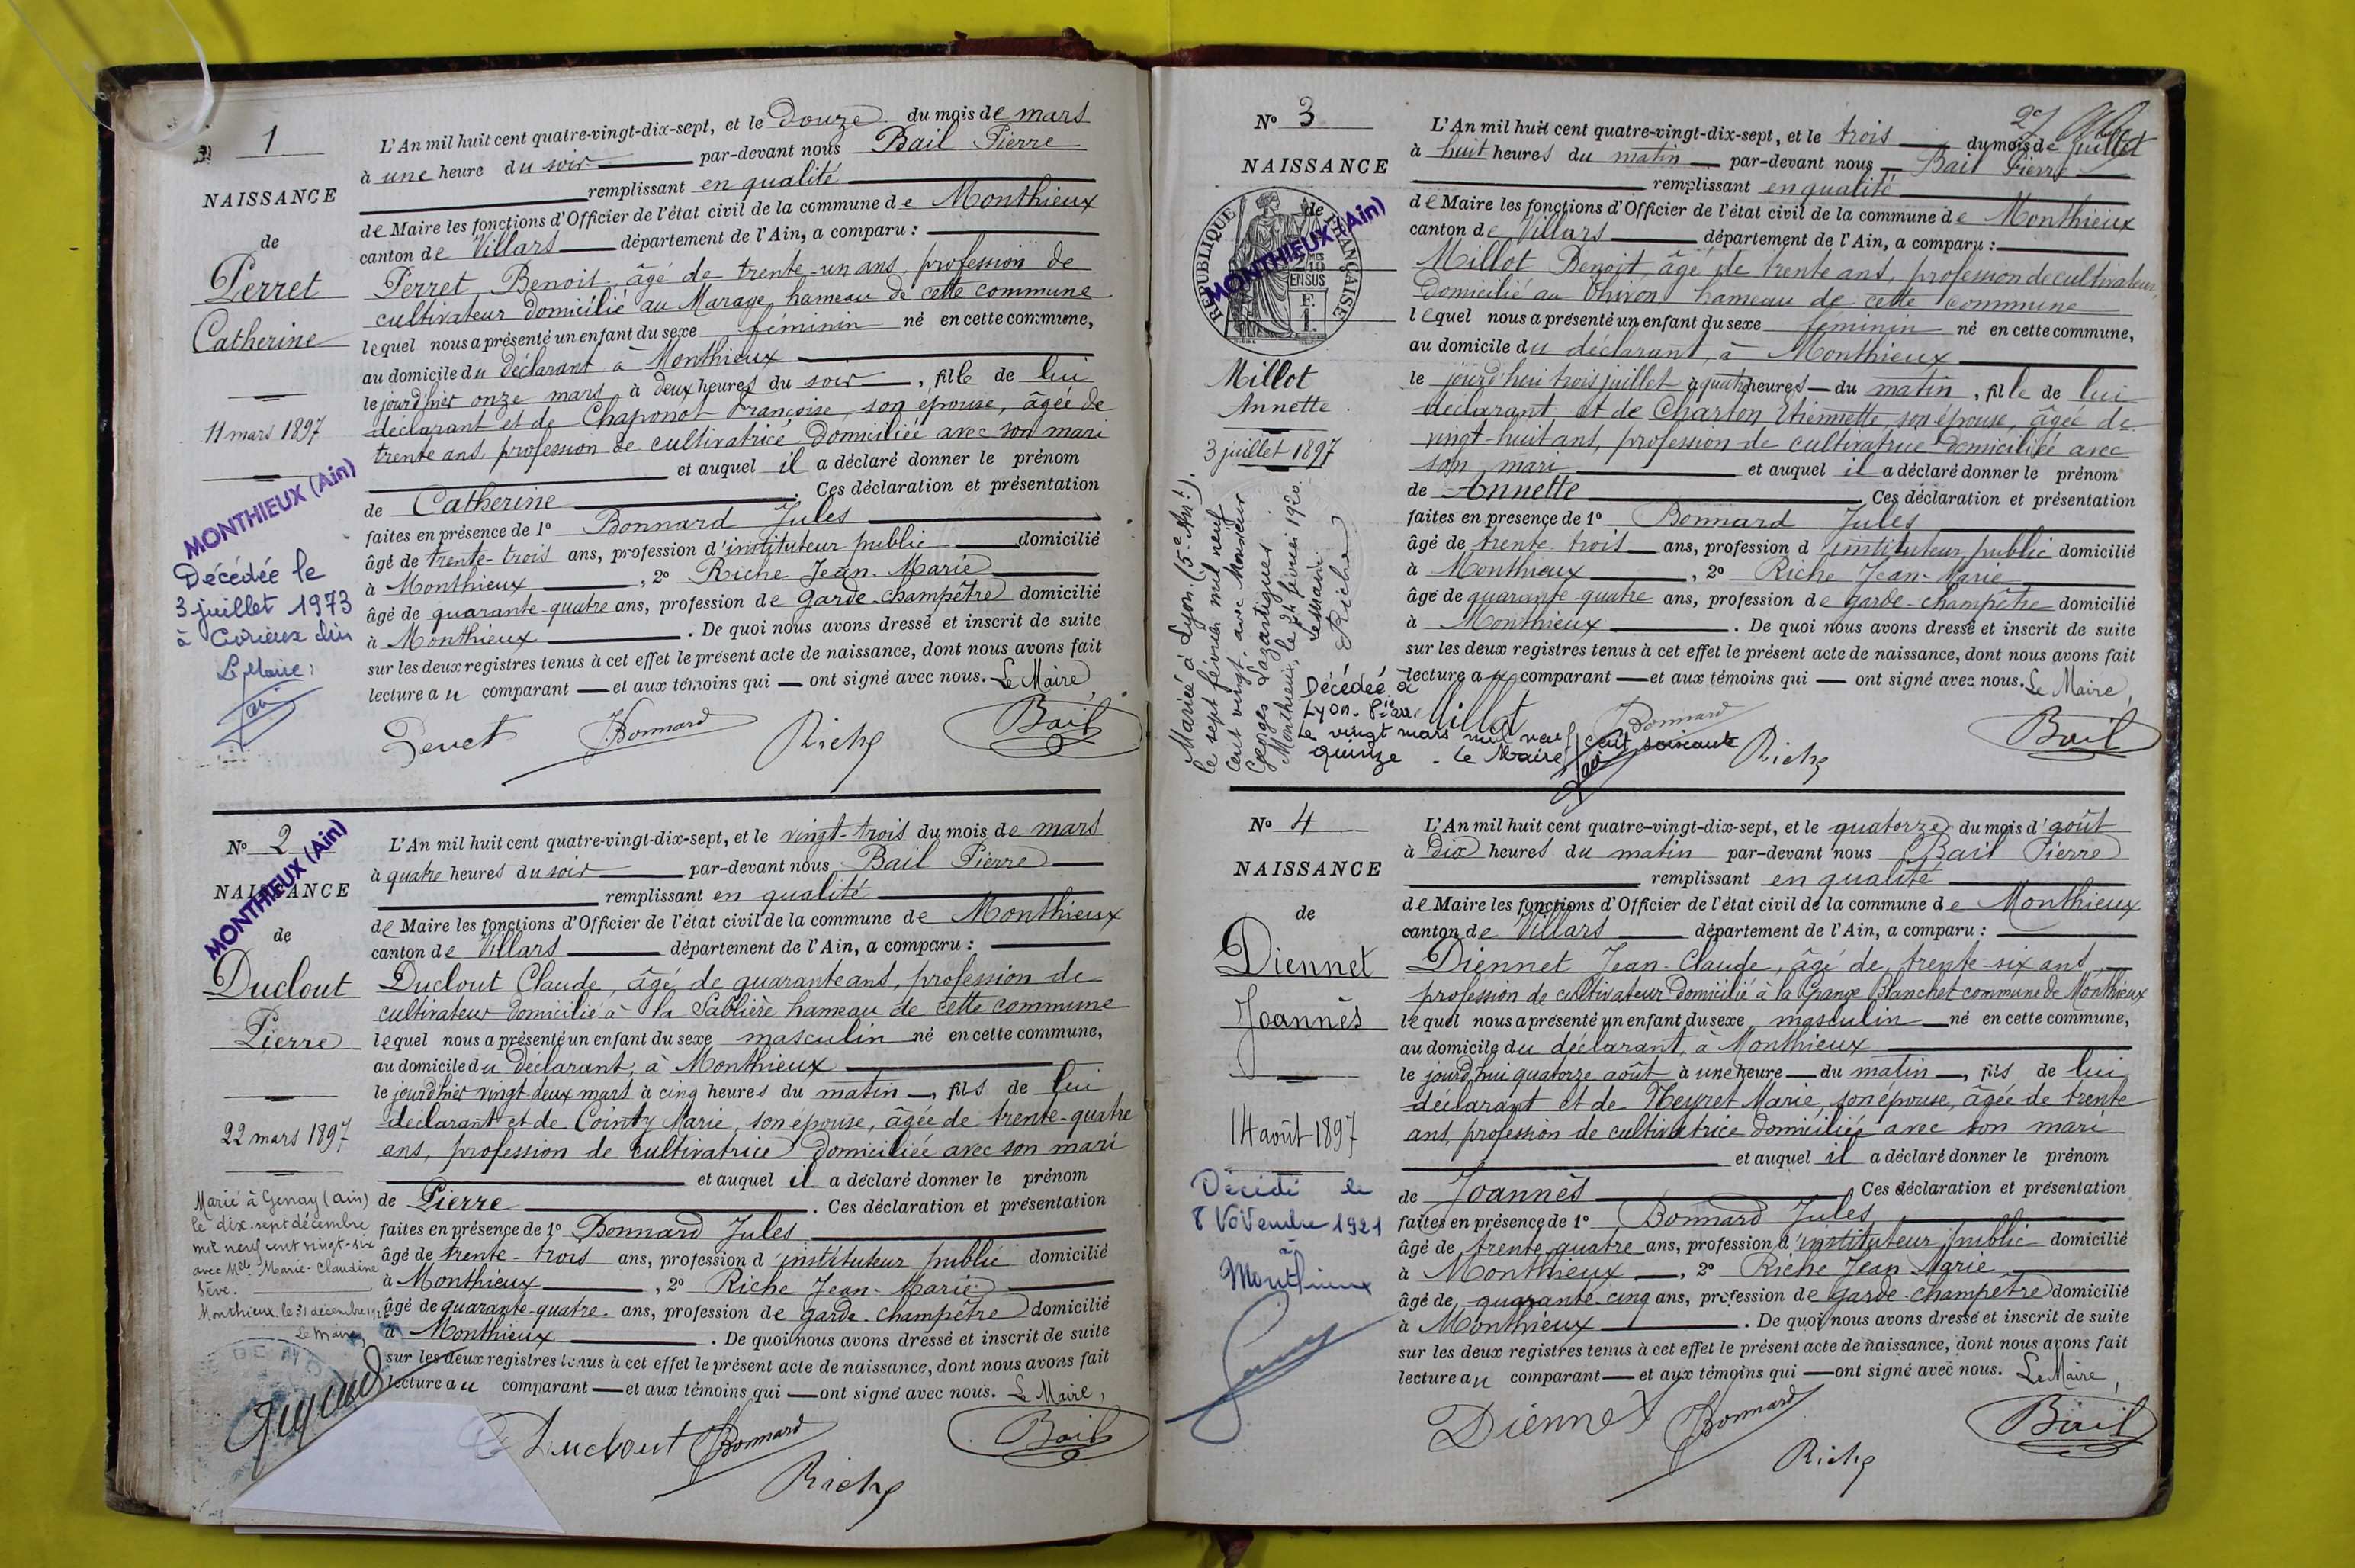 1
NAISSANCE
de
Perret
Catherine
11 mars 1897
MONTHIEUX (Ain)
Décédée le
3 juillet 1973
à Civrieux Ain
Le Maire,
L'An mil huit cent quatre-vingt-dix-sept, et le douze du mois de mars
à une heure du soir par-devant nous Bail Pierre
remplissant en qualité
de Maire les fonctions d'Officier de l'état civil de la commune de Monthieux
canton de Villars département de l'Ain, a comparu :
Perret Benoit, âgé de trente-un ans, profession de
cultivateur domicilié au Marage, hameau de cette commune
lequel nous a présenté un enfant du sexe féminin né en cette commune,
au domicile du déclarant à Monthieux
le jourd'hier onze mars, à deux heures du soir, fille de lui
déclarant et de Chaponot Françoise, son épouse, âgée de
trente ans, profession de cultivatrice domiciliée avec son mari
et auquel il a déclaré donner le prénom
de Catherine. Ces déclaration et présentation
faites en présence de 1° Bonnard Jules
âgé de trente-trois ans, profession d'instituteur public domicilié
à Monthieux, 2° Riche Jean-Marie
âgé de quarante-quatre ans, profession de garde-champêtre domicilié
à Monthieux. De quoi nous avons dressé et inscrit de suite
sur les deux registres tenus à cet effet le présent acte de naissance, dont nous avons fait
lecture au comparant — et aux témoins qui — ont signé avec nous. Le Maire,
Perret Bonnard Riche Bail
N° 2
NAISSANCE
MONTHIEUX (Ain)
de
Duclout
Pierre
22 mars 1897
Marié à Genay (Ain)
le dix-sept décembre
mil neuf cent vingt-six
avec Mlle Marie-Claudine
Sève.
Monthieux, le 31 décembre
Le Maire,
L'An mil huit cent quatre-vingt-dix-sept, et le vingt-trois du mois de mars
à quatre heures du soir par-devant nous Bail Pierre
remplissant en qualité
de Maire les fonctions d'Officier de l'état civil de la commune de Monthieux
canton de Villars département de l'Ain, a comparu :
Duclout Claude, âgé de quarante ans, profession de
cultivateur domicilié à la Sablière hameau de cette commune
lequel nous a présenté un enfant du sexe masculin né en cette commune,
au domicile du déclarant, à Monthieux
le jourd'hier vingt-deux mars à cinq heures du matin —, fils de lui
déclarant et de Cointy Marie, son épouse, âgée de trente-quatre
ans, profession de cultivatrice domiciliée avec son mari
et auquel il a déclaré donner le prénom
de Pierre. Ces déclaration et présentation
faites en présence de 1° Bonnard Jules
âgé de trente-trois ans, profession d'instituteur public domicilié
à Monthieux, 2° Riche Jean-Marie
âgé de quarante-quatre ans, profession de garde-champêtre domicilié
à Monthieux. De quoi nous avons dressé et inscrit de suite
sur les deux registres tenus à cet effet le présent acte de naissance, dont nous avons fait
lecture au comparant — et aux témoins qui — ont signé avec nous. Le Maire,
Duclout Bonnard Bail
Riche
N° 3
NAISSANCE
de
REPUBLIQUE FRANÇAISE
MONTHIEUX (Ain)
Millot
Annette
3 juillet 1897
Mariée à Lyon (5e Arrt).
le sept février mil neuf
cent vingt, avec Monsieur
Georges Lazartigues
Monthieux, le 24 février 1920.
Le Maire
Riche
Décédée à
Lyon-8ie arr.
le vingt mars mil neuf cent soixante
quinze - le Maire
L'An mil huit cent quatre-vingt-dix-sept, et le trois du mois de juillet
à huit heures du matin — par-devant nous Bail Pierre
remplissant en qualité
de Maire les fonctions d'Officier de l'état civil de la commune de Monthieux
canton de Villars département de l'Ain, a comparu :
Millot Benoît, âgé de trente ans, profession de cultivateur,
domicilié au Chiron hameau de cette commune
lequel nous a présenté un enfant du sexe féminin né en cette commune,
au domicile du déclarant, à Monthieux
le jourd'hui trois juillet à quatre heures — du matin, fille de lui
déclarant et de Charton Etiennette, son épouse, âgée de
vingt-huit ans, profession de cultivatrice domiciliée avec
son mari et auquel il a déclaré donner le prénom
de Annette. Ces déclaration et présentation
faites en présence de 1° Bonnard Jules
âgé de trente-trois ans, profession d'instituteur public domicilié
à Monthieux, 2° Riche Jean-Marie
âgé de quarante-quatre ans, profession de garde-champêtre domicilié
à Monthieux. De quoi nous avons dressé et inscrit de suite
sur les deux registres tenus à cet effet le présent acte de naissance, dont nous avons fait
lecture au comparant — et aux témoins qui — ont signé avec nous. Le Maire,
Millot Bonnard Riche Bail
N° 4
NAISSANCE
de
Diennet
Joannès
14 août 1897
Décédé le
8 Novembre 1921
à
Monthieux
L'An mil huit cent quatre-vingt-dix-sept, et le quatorze du mois d'août
à dix heures du matin par-devant nous Bail Pierre
remplissant en qualité
de Maire les fonctions d'Officier de l'état civil de la commune de Monthieux
canton de Villars département de l'Ain, a comparu :
Diennet Jean-Claude, âgé de trente-six ans,
profession de cultivateur domicilié à la Grange Blanchet commune de Monthieux
lequel nous a présenté un enfant du sexe masculin né en cette commune,
au domicile du déclarant, à Monthieux
le jourd'hui quatorze août à une heure — du matin —, fils de lui
déclarant et de Neyret Marie, son épouse, âgée de trente
ans, profession de cultivatrice domiciliée avec son mari
et auquel il a déclaré donner le prénom
de Joannès. Ces déclaration et présentation
faites en présence de 1° Bonnard Jules
âgé de trente-quatre ans, profession d'instituteur public domicilié
à Monthieux, 2° Riche Jean Marie
âgé de quarante-cinq ans, profession de garde-champêtre domicilié
à Monthieux. De quoi nous avons dressé et inscrit de suite
sur les deux registres tenus à cet effet le présent acte de naissance, dont nous avons fait
lecture au comparant — et aux témoins qui — ont signé avec nous. Le Maire,
Diennet Bonnard Bail
Riche